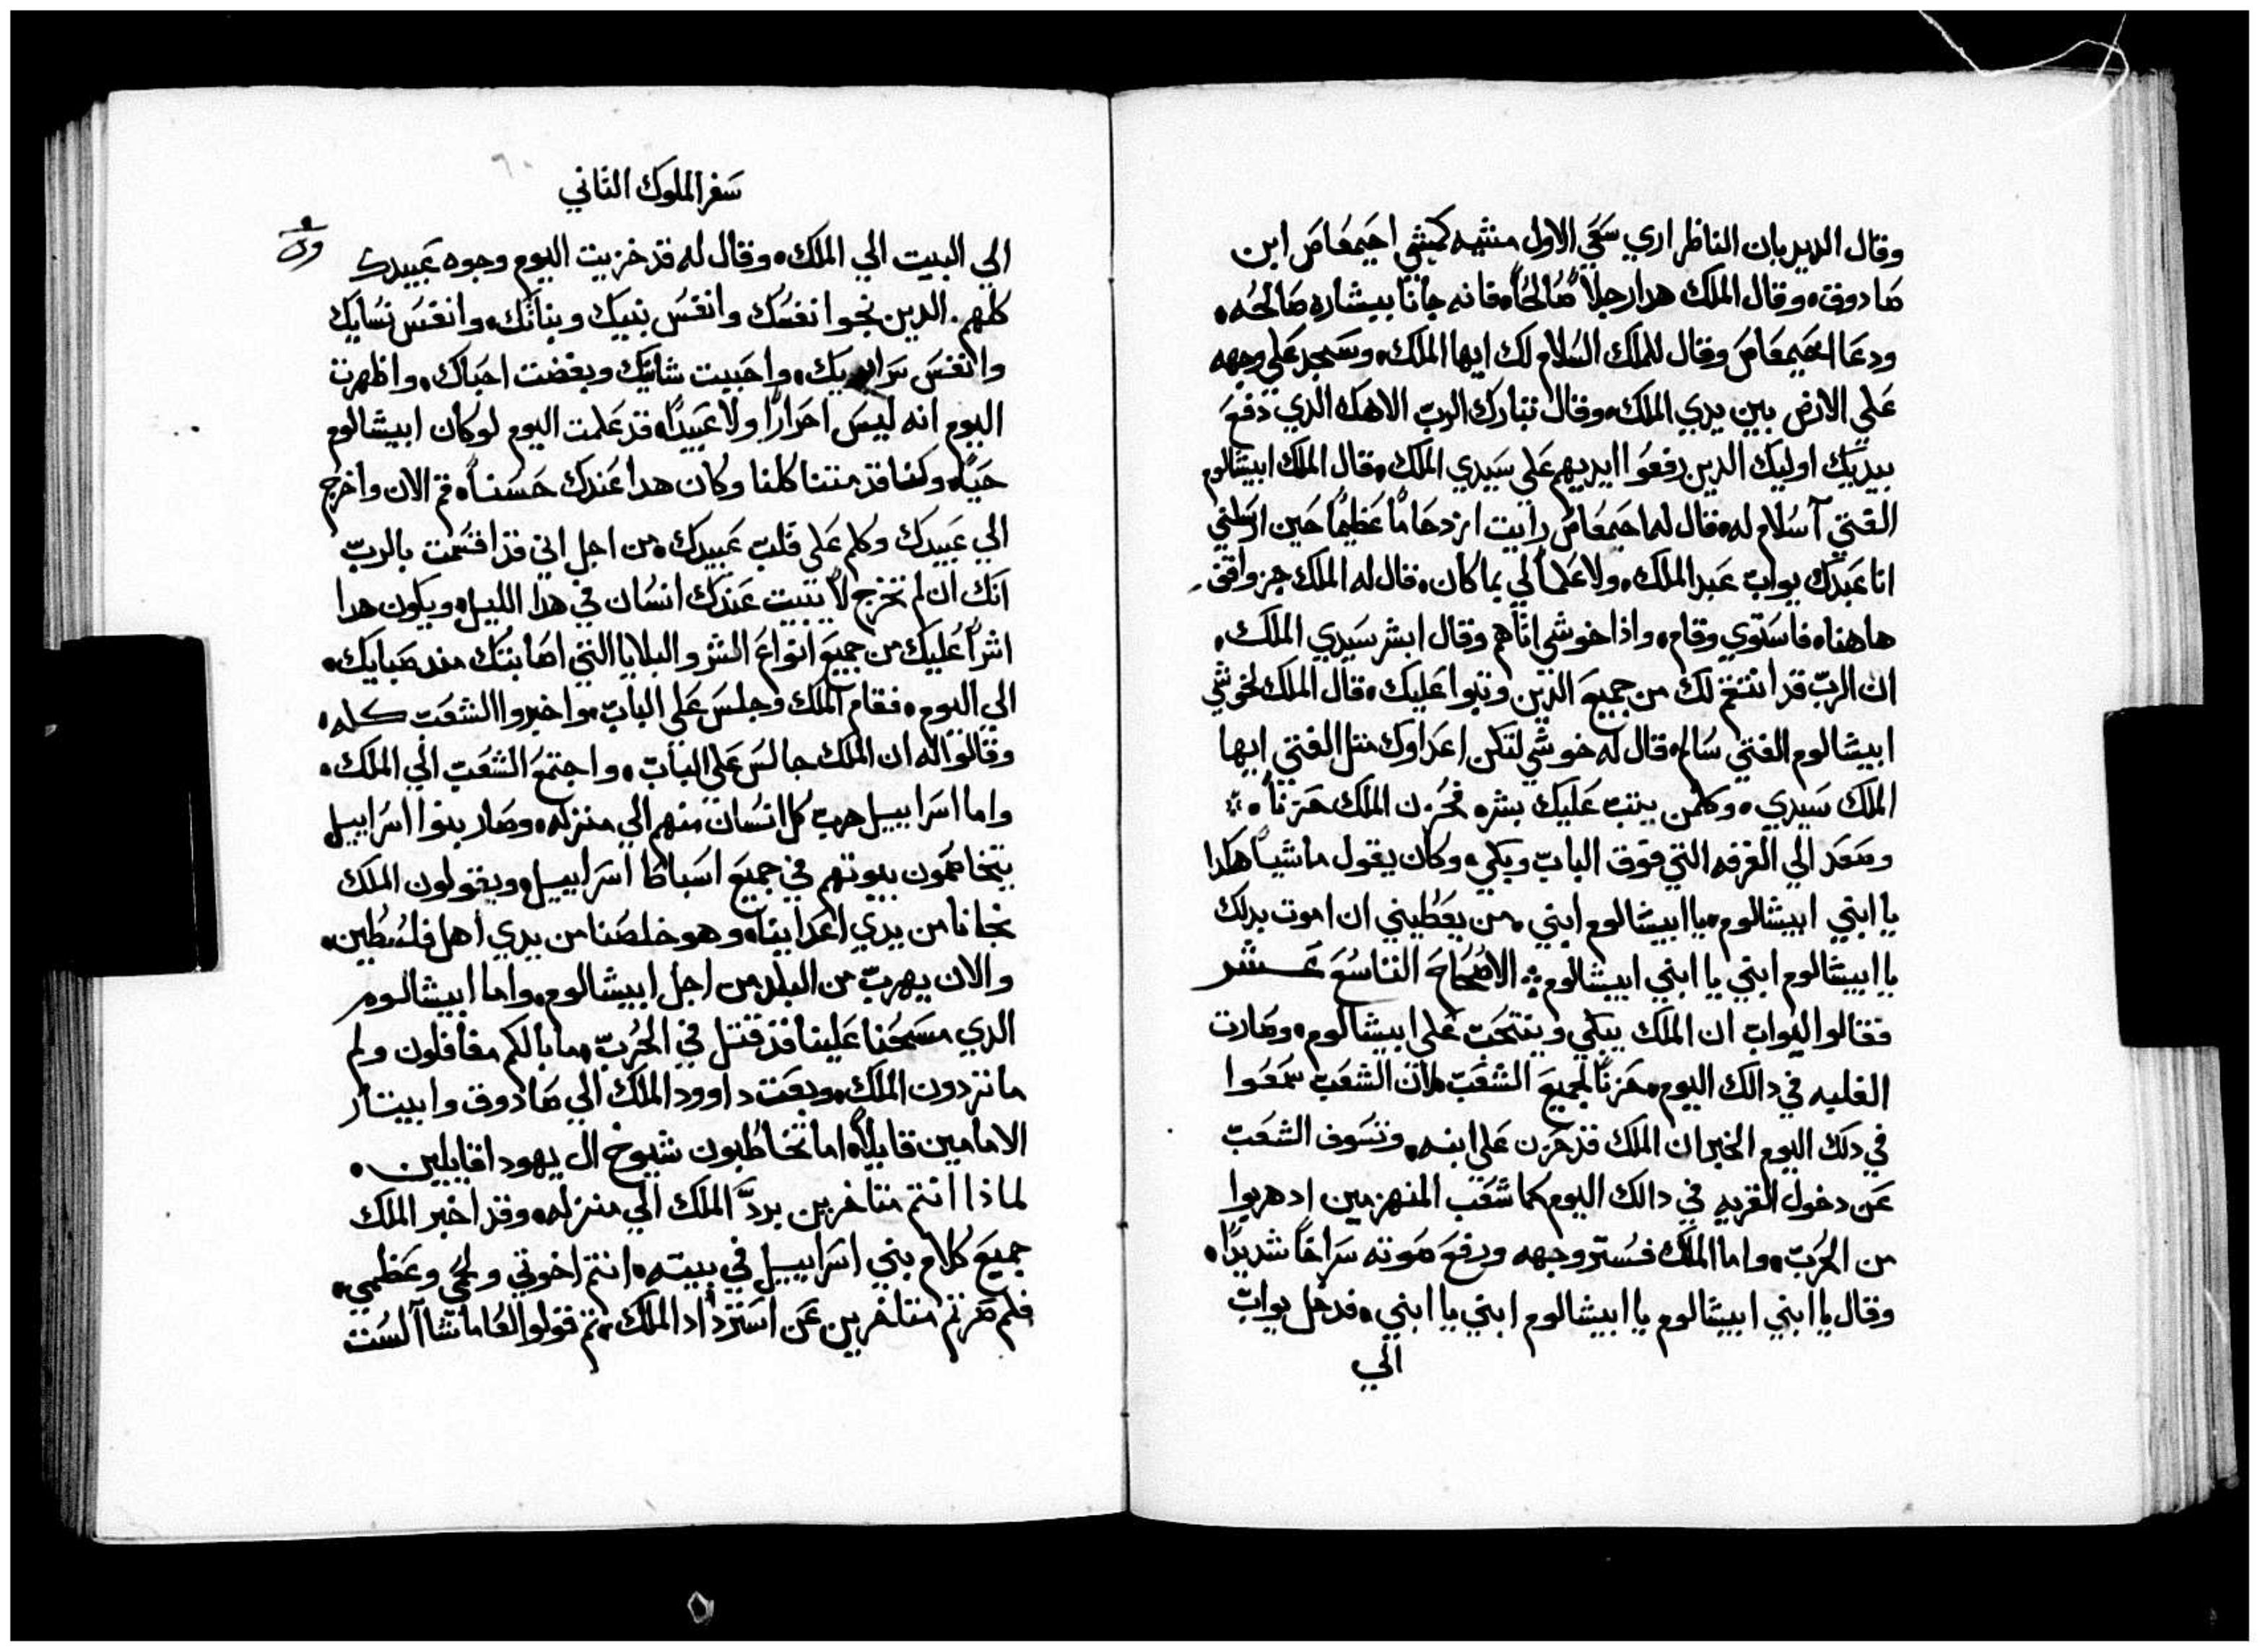 وقال الديدبان الناظر اري سعي الاول مشيه كمشي احيمعاص ابن
صادوق، وقال الملك هدا رجلاً صالحاً، فانه جانا ببشاره صالحه،
ودعا احيمعاص وقال للملك السلام لك ايها الملك، وسجد على وجهه
على الارض بين يدي الملك، وقال تبارك الرب الاهك الدي دفع
بيديك اوليك الدين رفعوا ايديهم على سيدي الملك، قال الملك ابيشالوم
الفتي آسلام له، قال له احيمعاص رايت ازدحاماً عظيماً حين ارسلني
انا عبدك يواب عبد الملك، ولا علم لي بما كان، قال له الملك جز واقف
هاهنا، فاستوي وقام، واذا خوشي اتاهم وقال ابشر سيدي الملك،
ان الرب قد انتقم لك من جميع الدين وثبوا عليك، قال الملك لخوشي
ابيشالوم الفتي سالم، قال له خوشي لتكن اعداوك مثل الفتي ايها
الملك سيدي، وكلمن يثب عليك بشره فحزن الملك حزناً
وصعد الي الغرفه التي فوق الباب وبكي، وكان يقول ماشياً هكدا
يا ابني ابيشالوم، يا ابيشالوم ابني، من يعطيني ان اموت بدلك
يا ابيشالوم ابني يا ابني ابيشالوم، الاصحاح التاسع عشر
فقالوا ليواب ان الملك يبكي وينتحب على ابيشالوم، وصارت
الغلبه في دالك اليوم، حزناً لجميع الشعب، لان الشعب سمعوا
في دلك اليوم الخبر ان الملك قد حزن على ابنه، وتسوف الشعب
عن دخول القريه في دالك اليوم كما شعب المنهزمين اد هربوا
من الحرب، واما الملك فستر وجهه ورفع صوته صراخاً شديداً،
وقال يا ابني ابيشالوم يا ابيشالوم ابني يا ابني، فدخل يواب
الي
سفر الملوك الثاني
٦٠
الي البيت الي الملك، وقال له قد خزيت اليوم وجوه عبيدك
كلهم، الدين نجوا نفسك وانفس بنيك وبناتك، وانفس نسايك
وانفس سراريك، واحببت شانيك وبغضت احباك، واظهرت
اليوم انه ليس احراراً ولا عبيداً، قد علمت اليوم لوكان ابيشالوم
حياً، وكنا قد متنا كلنا وكان هدا عندك حسناً، قم الان واخرج
الي عبيدك وكلم على قلب عبيدك، من اجل اني قد اقسمت بالرب
انك ان لم تخرج لا يبيت عندك انسان في هدا الليل، ويكون هدا
اشراً عليك من جميع انواع الشر والبلايا التي اصابتك مند صبايك،
الي اليوم، فقام الملك وجلس على الباب، واخبروا الشعب كله،
وقالوا له ان الملك جالس على الباب، واجتمع الشعب الي الملك،
واما اسراييل هرب كل انسان منهم الي منزله، وصار بنوا اسراييل
يتخاصمون بيوتهم في جميع اسباط اسراييل، ويقولون الملك
نجانا من يدي اعداينا، وهو خلصنا من يدي اهل فلسطين،
والان يهرب من البلد من اجل ابيشالوم، واما ابيشالوم
الدي مسحنا علينا قد قتل في الحرب، ما بالكم مغافلون ولم
ما تردون الملك، وبعت داوود الملك الي صادوق وابيتار
الامامين قايلاً، اما تخاطبون شيوخ ال يهودا قايلين،
لماذا انتم متاخرين برد الملك الي منزله، وقد اخبر الملك
جميع كلام بني اسراييل في بيته، انتم اخوتي ولحمي وعظمي،
فلم صرتم متاخرين عن استرداد الملك، تم قولوا لعاماشا آلست